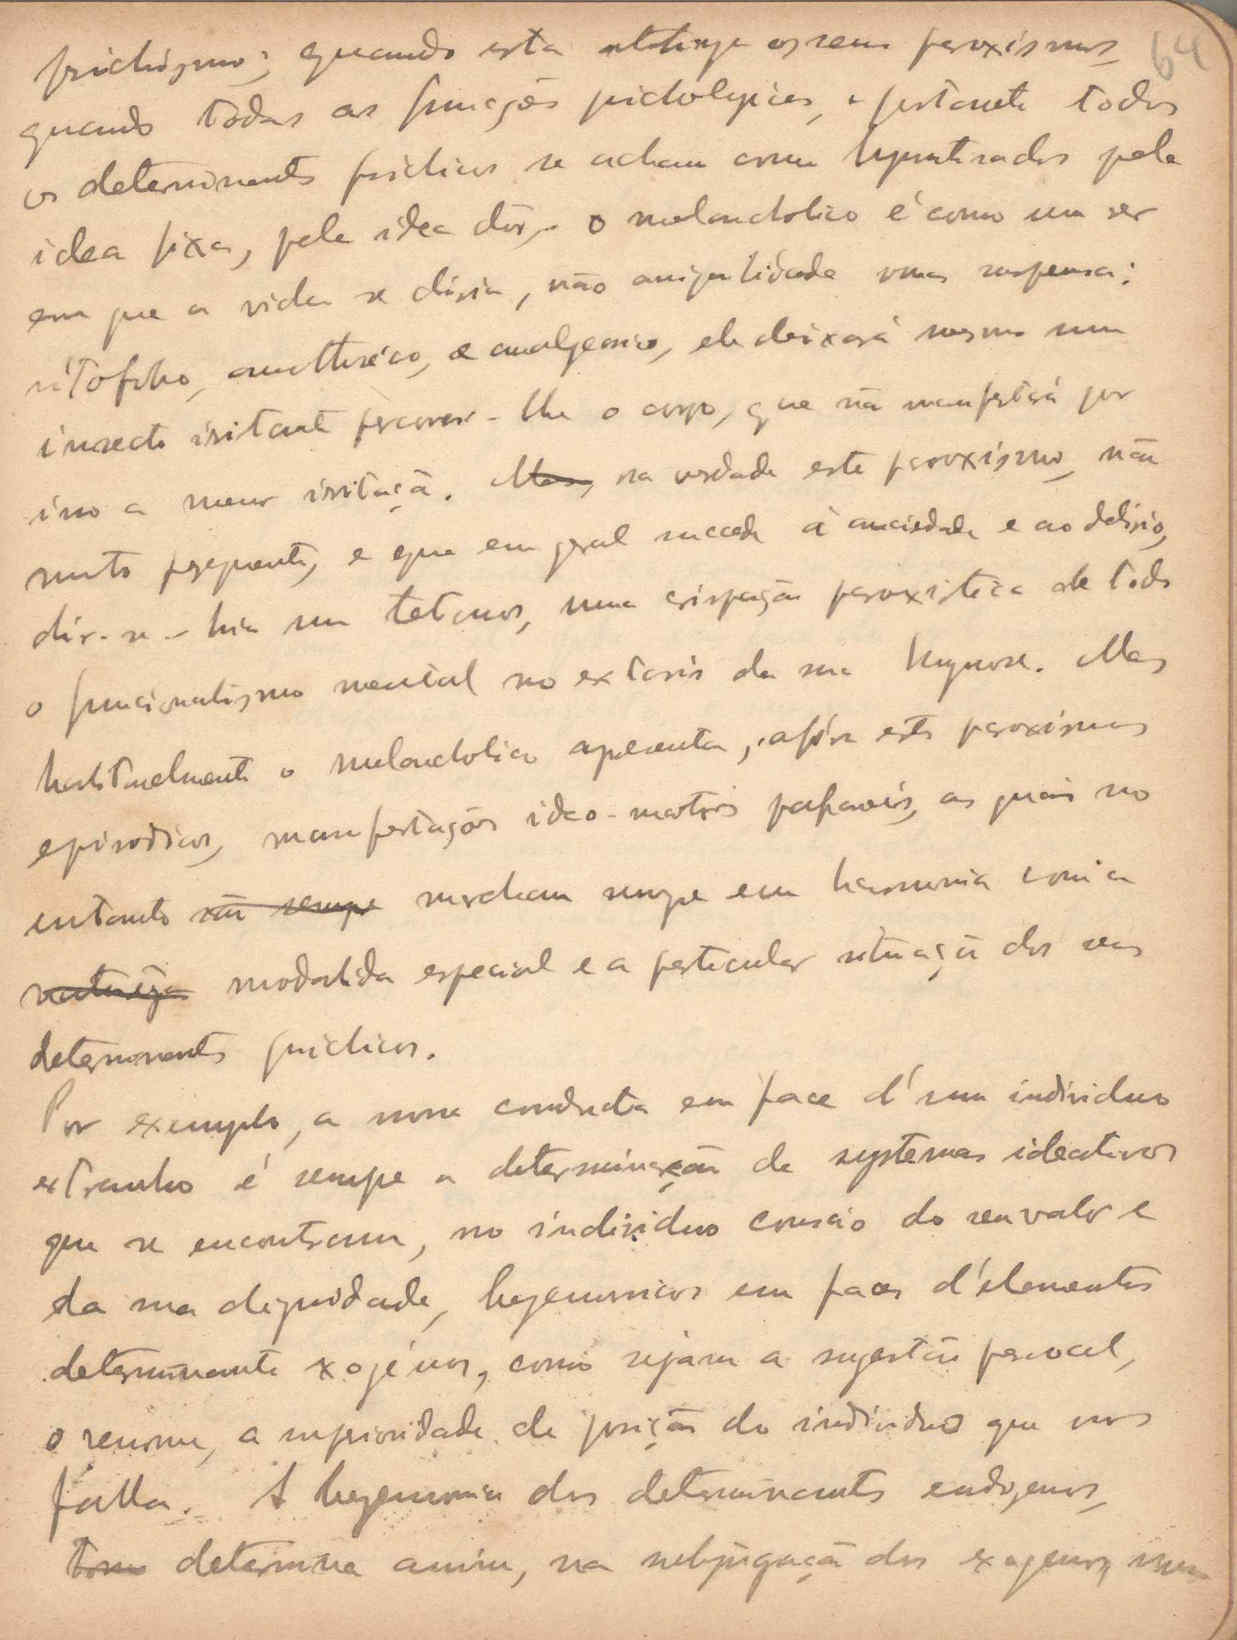 psichismo; quando esta attinge os seus paroxismos,
64
quando todas as funções psichologicas, e portante todos
os determinants psichicos se acham como hypnotisados pela
idea fixa, pela idea dôr, o melancholico é como um ser
em que a vida se diria, não aniquilidade mas suspensa;
sitofobo, anesthesico, e analgesico, ele deixará mesmo um
insecto irritante percorrer-lhe o corpo, que não manifestará por
isso a menor irritaçã. Mas, na verdade este paroxismo, não
muito frequente, e que em geral succede á anciedade e ao delirio,
dir-se-hia um tetanos, uma crispação paroxistica de todo
o funcionalismo mental no extasis da sua hypnose. Mas
habitualmente o melancholico apresenta, afóra estes paroxismos
episodicos, manifestações ideo-motris palpaveis, as quais no
entanto não sempre marcham sempre em harmonia com a
natureza modalida especial e a particular situaçã dos seus
determinants psichicos.
Por exemplo, a nossa conducta em face d'um individuo
extranho é sempe a determinação de systemas ideativos
que se encontram, no individuo conscio do seu valor e
da sua dignidade, hegemonicos em faces d'elementos
determinante xogénos, como sejam a sugestão pessoal,
o renome, a superioridade de posição do individuo que nos
falla. A hegemonia dos determinants endogenos,
tom determina assim, na subjugaçã dos exogenos, uma